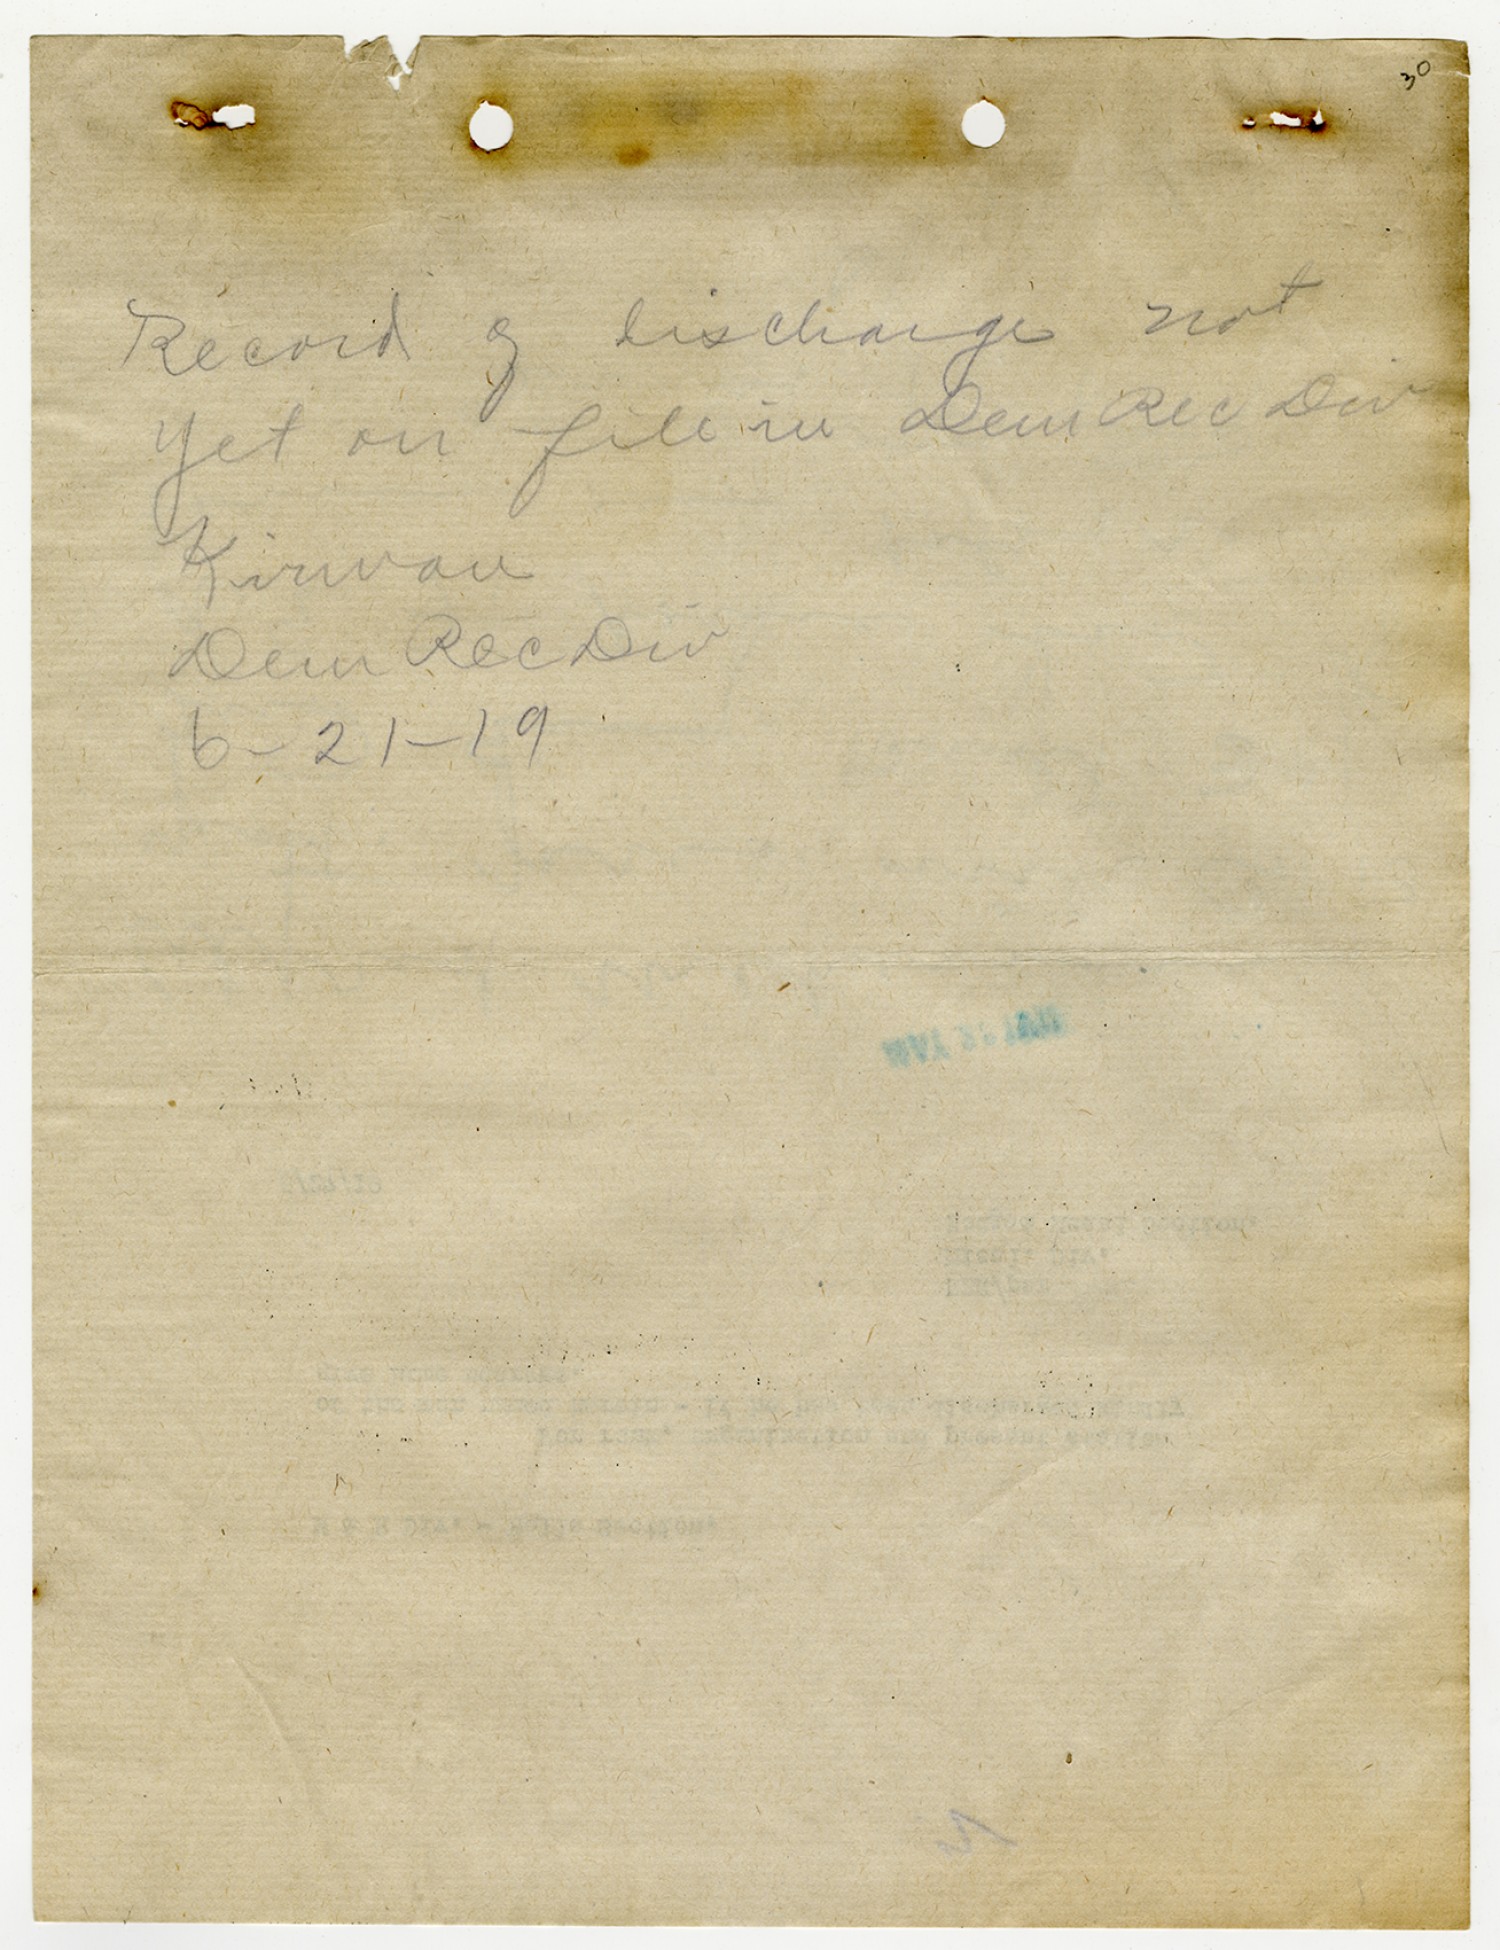 30
Record of discharge not
yet on file in Dem Rec Div
Kirwan
Dem Rec Div
6-21-19